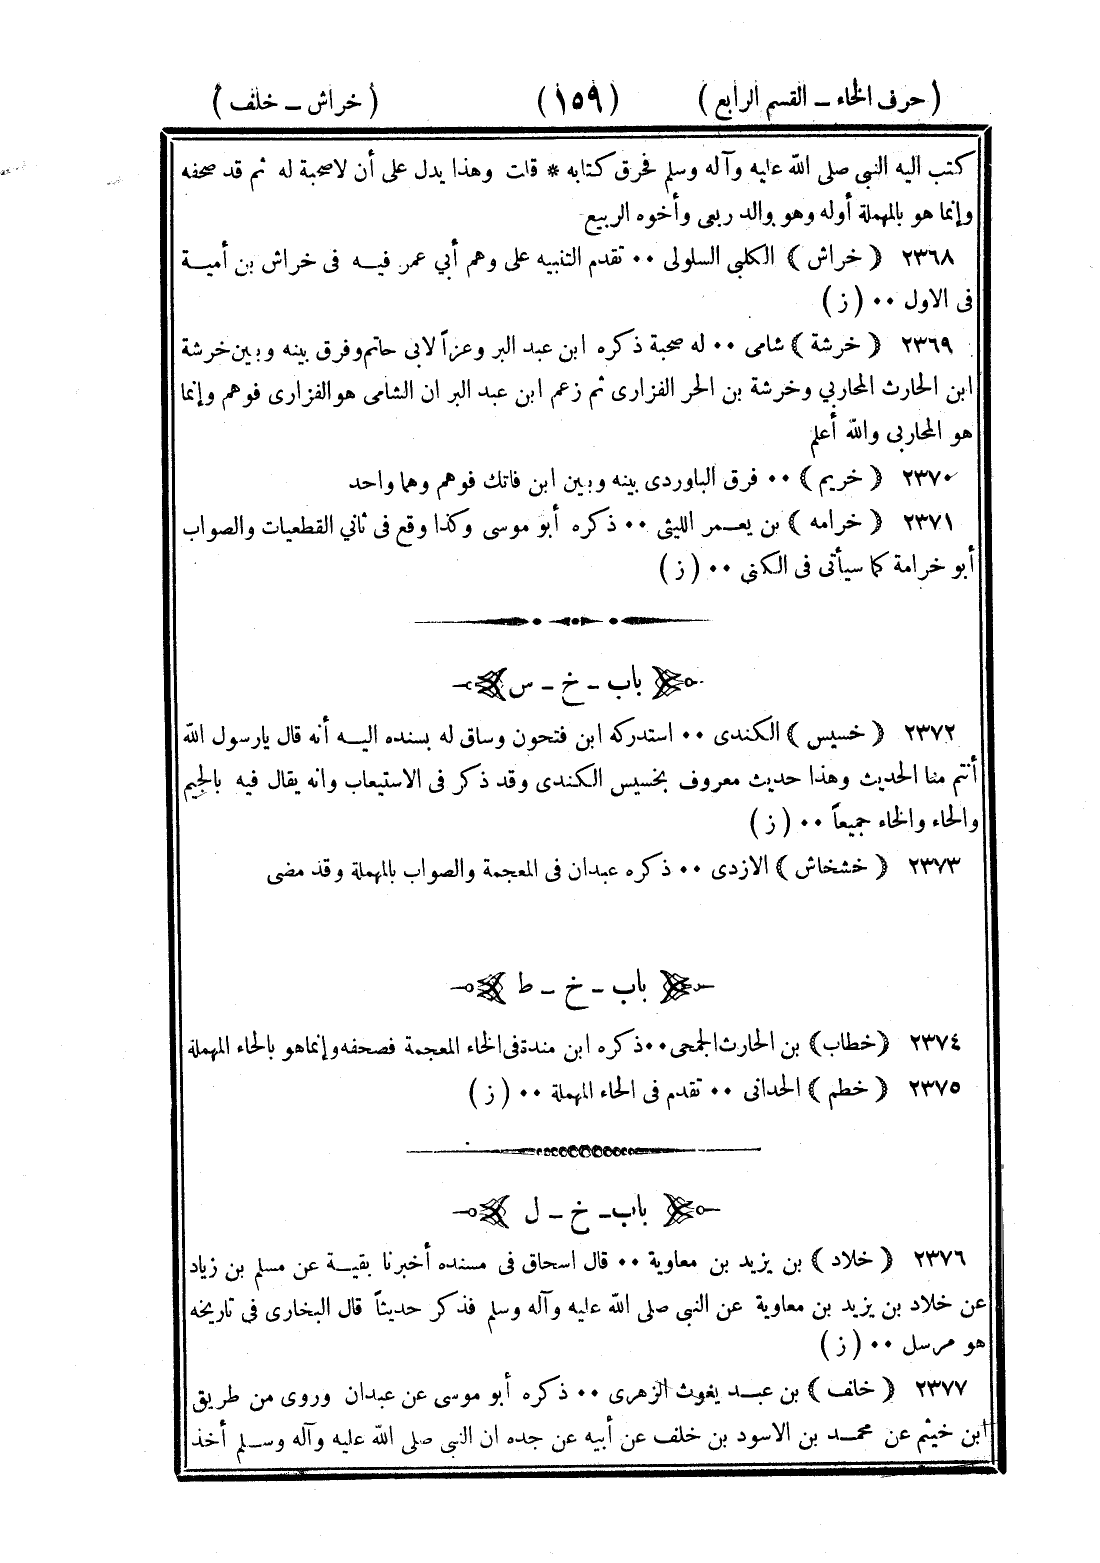 (حرف الخاء – القسم الرابع) (١٥٩) (خراش – خلف)
كتب اليه النبى صلى الله عليه وآله وسلم فخرق كتابه * قلت وهذا يدل على أن لاصحبة له ثم قد صحفه
وإنما هو بالمهملة أوله وهو والد ربعى وأخوه الربيع
٢٣٦٨ ( خراش ) الكلبى السلولى ٠٠ تقدم التنبيه على وهم أبي عمر فيه فى خراش بن أمية
فى الاول ٠٠ ( ز )
٢٣٦٩ ( خرشة ) شامى ٠٠ له صحبة ذكره ابن عبد البر وعزاً لابى حاتم وفرق بينه وبين خرشة
ابن الحارث المحاربي وخرشة بن الحر الفزارى ثم زعم ابن عبد البر ان الشامى هو الفزارى فوهم وإنما
هو المحاربي والله أعلم
٢٣٧٠ ( خريم ) ٠٠ فرق الباوردى بينه وبين ابن فاتك فوهم وهما واحد
٢٣٧١ ( خرامه ) بن يعمر الليثى ٠٠ ذكره أبو موسى وكذا وقع فى ثاني القطعيات والصواب
أبو خرامة كما سيأتى فى الكنى ٠٠ ( ز )
باب – خ – س
٢٣٧٢ ( خسيس ) الكندى ٠٠ استدركه ابن فتحون وساق له بسنده اليه أنه قال يارسول الله
أنتم منا الحديث وهذا حديث معروف بخسيس الكندى وقد ذكر فى الاستيعاب وانه يقال فيه بالجيم
والحاء والخاء جميعاً ٠٠ ( ز )
٢٣٧٣ ( خشخاش ) الازدى ٠٠ ذكره عبدان فى المعجمة والصواب بالمهملة وقد مضى
باب – خ – ط
٢٣٧٤ ( خطاب ) بن الحارث الجمحى ٠٠ ذكره ابن مندة فى الخاء المعجمة فصحفه وإنما هو بالحاء المهملة
٢٣٧٥ ( خطم ) الحدانى ٠٠ تقدم فى الحاء المهملة ٠٠ ( ز )
باب – خ – ل
٢٣٧٦ ( خلاد ) بن يزيد بن معاوية ٠٠ قال اسحاق فى مسنده أخبرنا بقية عن مسلم بن زياد
عن خلاد بن يزيد بن معاوية عن النبى صلى الله عليه وآله وسلم فذكر حديثاً قال البخارى فى تاريخه
هو مرسل ٠٠ ( ز )
٢٣٧٧ ( خلف ) بن عبد يغوث الزهرى ٠٠ ذكره أبو موسى عن عبدان وروى من طريق
ابن خيثم عن محمد بن الاسود بن خلف عن أبيه عن جده ان النبى صلى الله عليه وآله وسلم أخذ